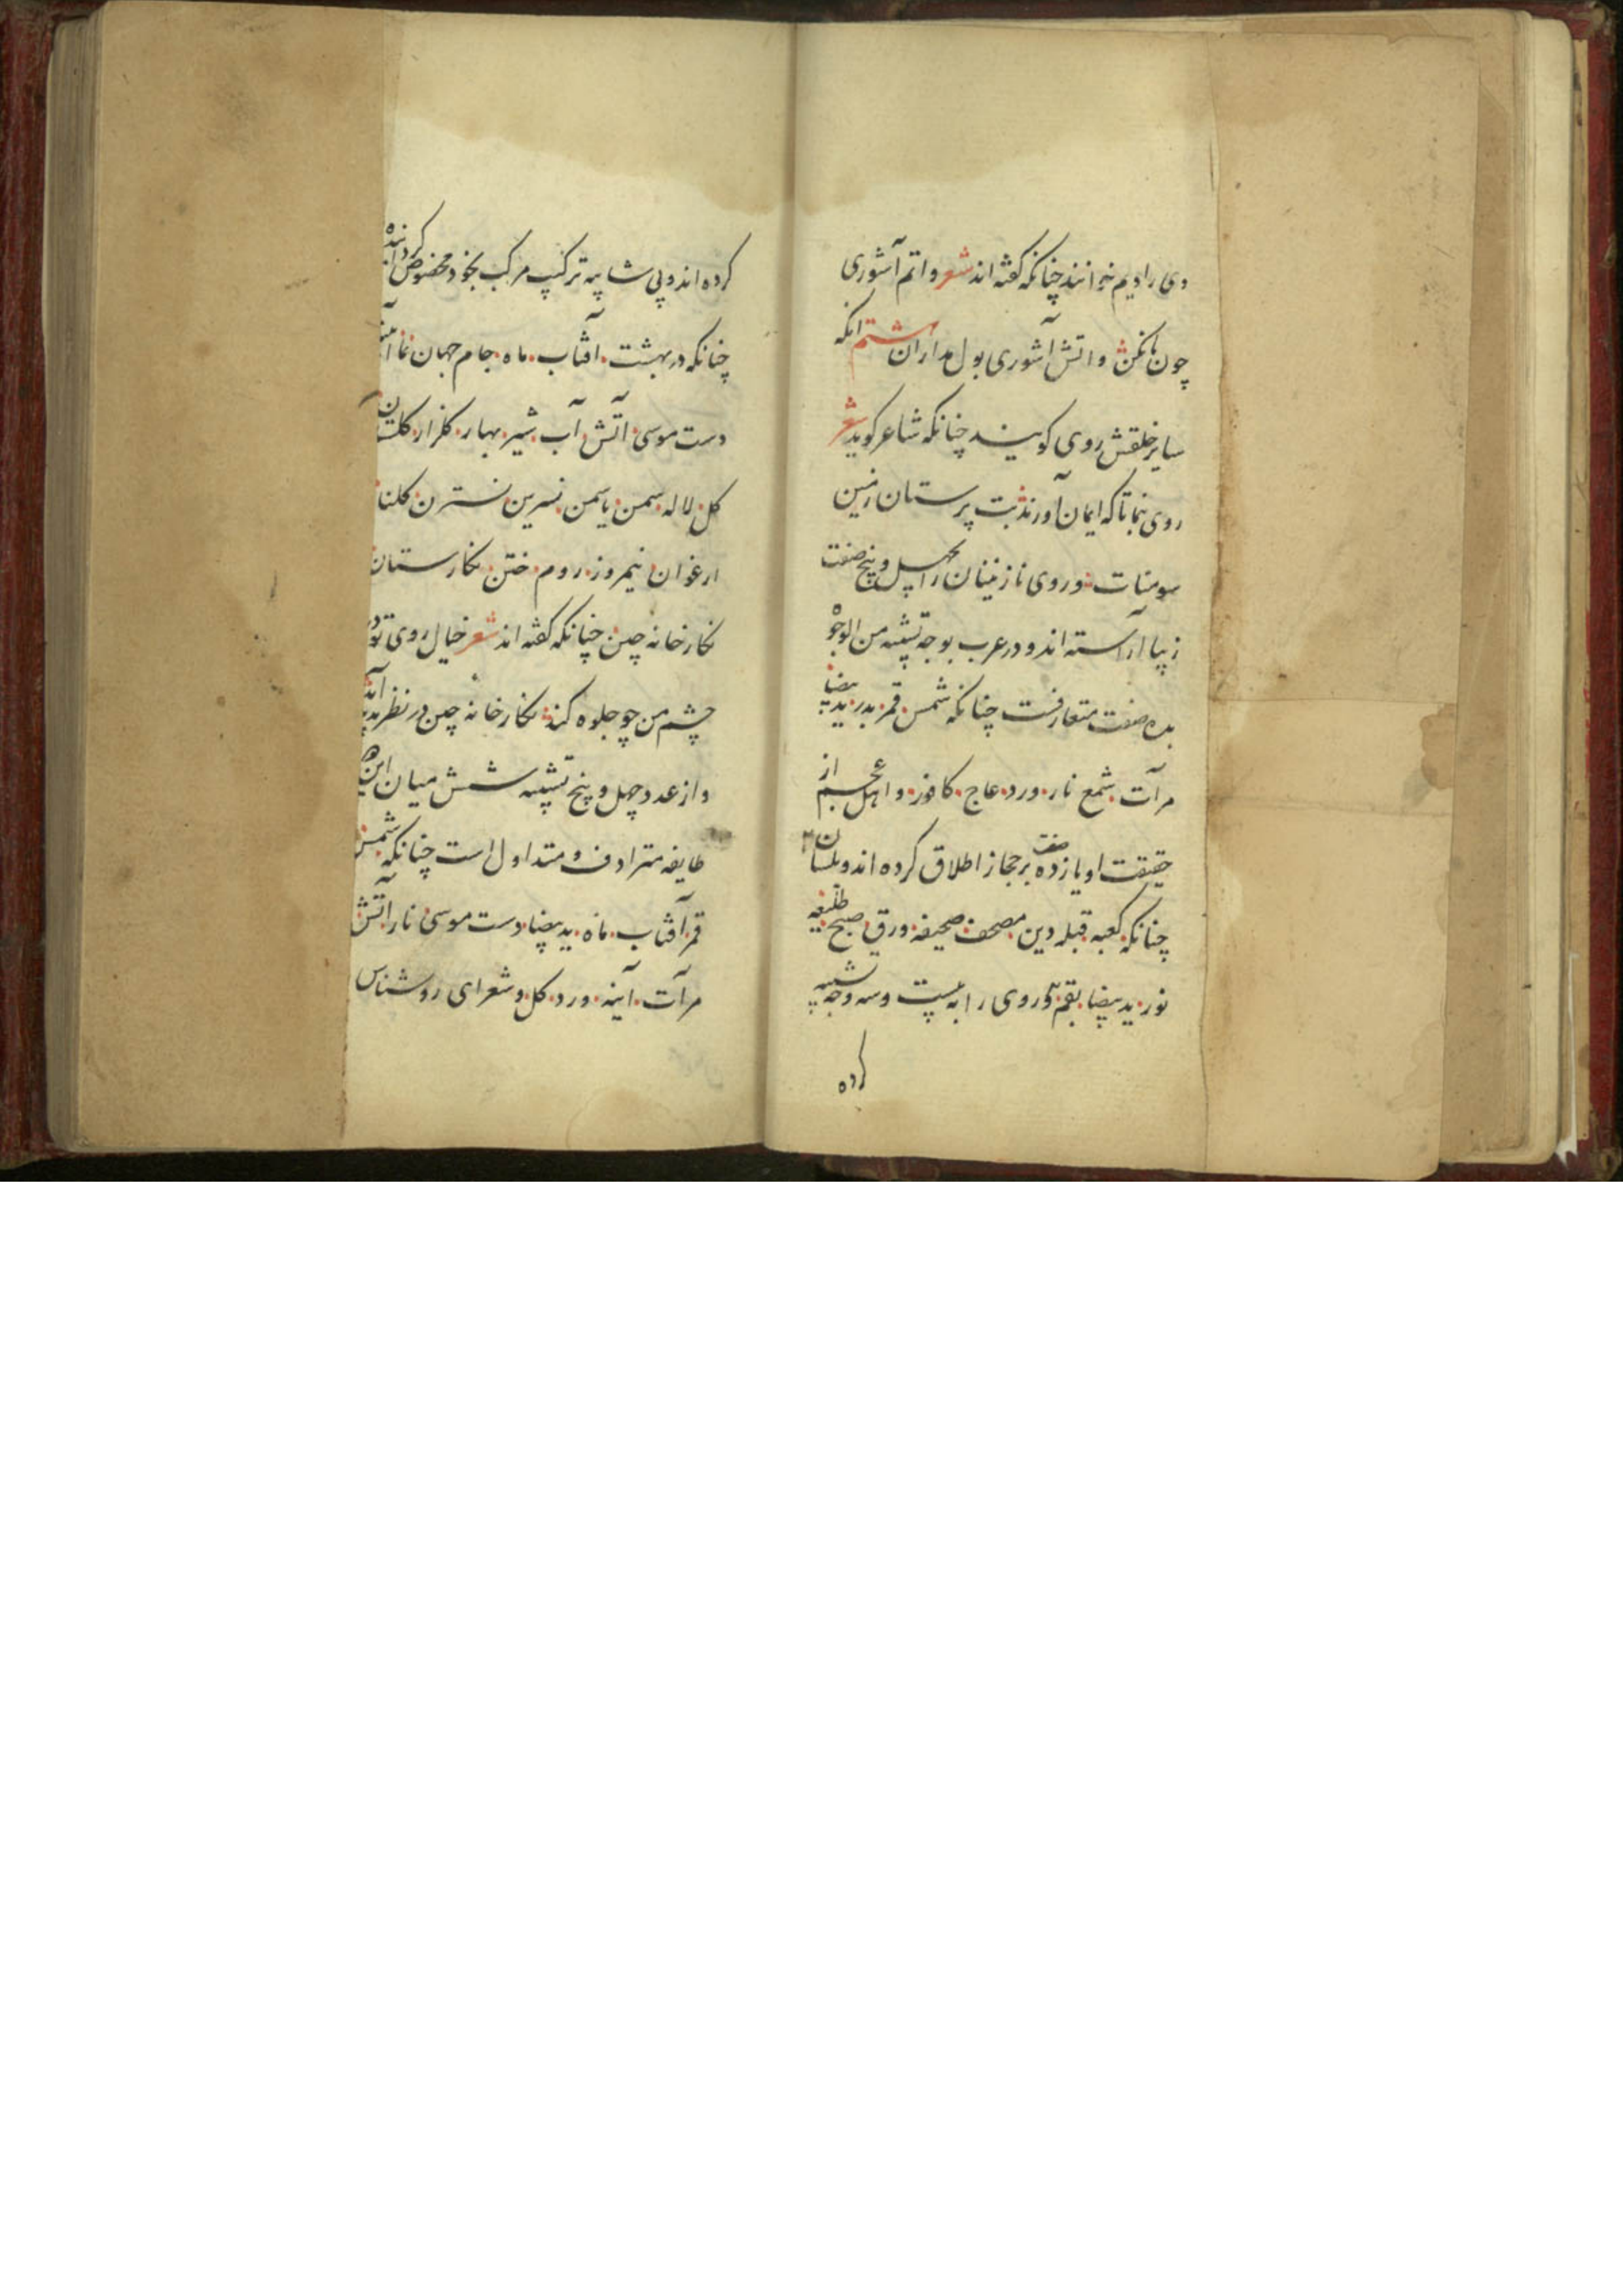 وی را دیم خوانند چنانکه گفته اند شعر واتم آشوری
چون بکن واتش آشوری بول مداران هشتم انکه
سایر خلقش روی کویند چنانکه شاعر کوید شعر
روی بنما تا که ایمان آورند بت پرستان زمین
سومنات و روی نازنینان را بچهل و پنج صفت
زیبا آراسته اند و در عرب بوجه تشبیه من الوجوه
بده صفت متعارفست چنانکه شمس قمر بدر ید بیضا
مرآت شمع نار ورد عاج کافور و اهل عجم از
حقیقت او یازده صفت بر مجاز اطلاق کرده اند و بلسان
چنانکه کعبه قبله دین مصحف صحیفه ورق صبح طلیعه
نور ید بیضا بقم و روی را به بیست و سه وجه تشبیه
کرده
کرده اند و بی شایبه ترکیب مرکب بخود مخصوص کردانیده اند
چنانکه در بهشت آفتاب ماه جام جهان نما آینه
دست موسی آتش آب شیر بهار کلزار کلستان
کل لاله سمن یاسمن نسرین نسترن کلنار
ارغوان نیمروز روم ختن نکارستان
نکارخانه چین چنانکه کفته اند شعر خیال روی تو در
چشم من چو جلوه کند نکارخانه چین در نظر پدید آید
و از عدد چهل و پنج تشبیه شش میان این
طایفه مترادف و متداول است چنانکه شمس
قمر آفتاب ماه ید بیضا دست موسی نار آتش
مرآت آینه ورد کل و شعرای روشناس